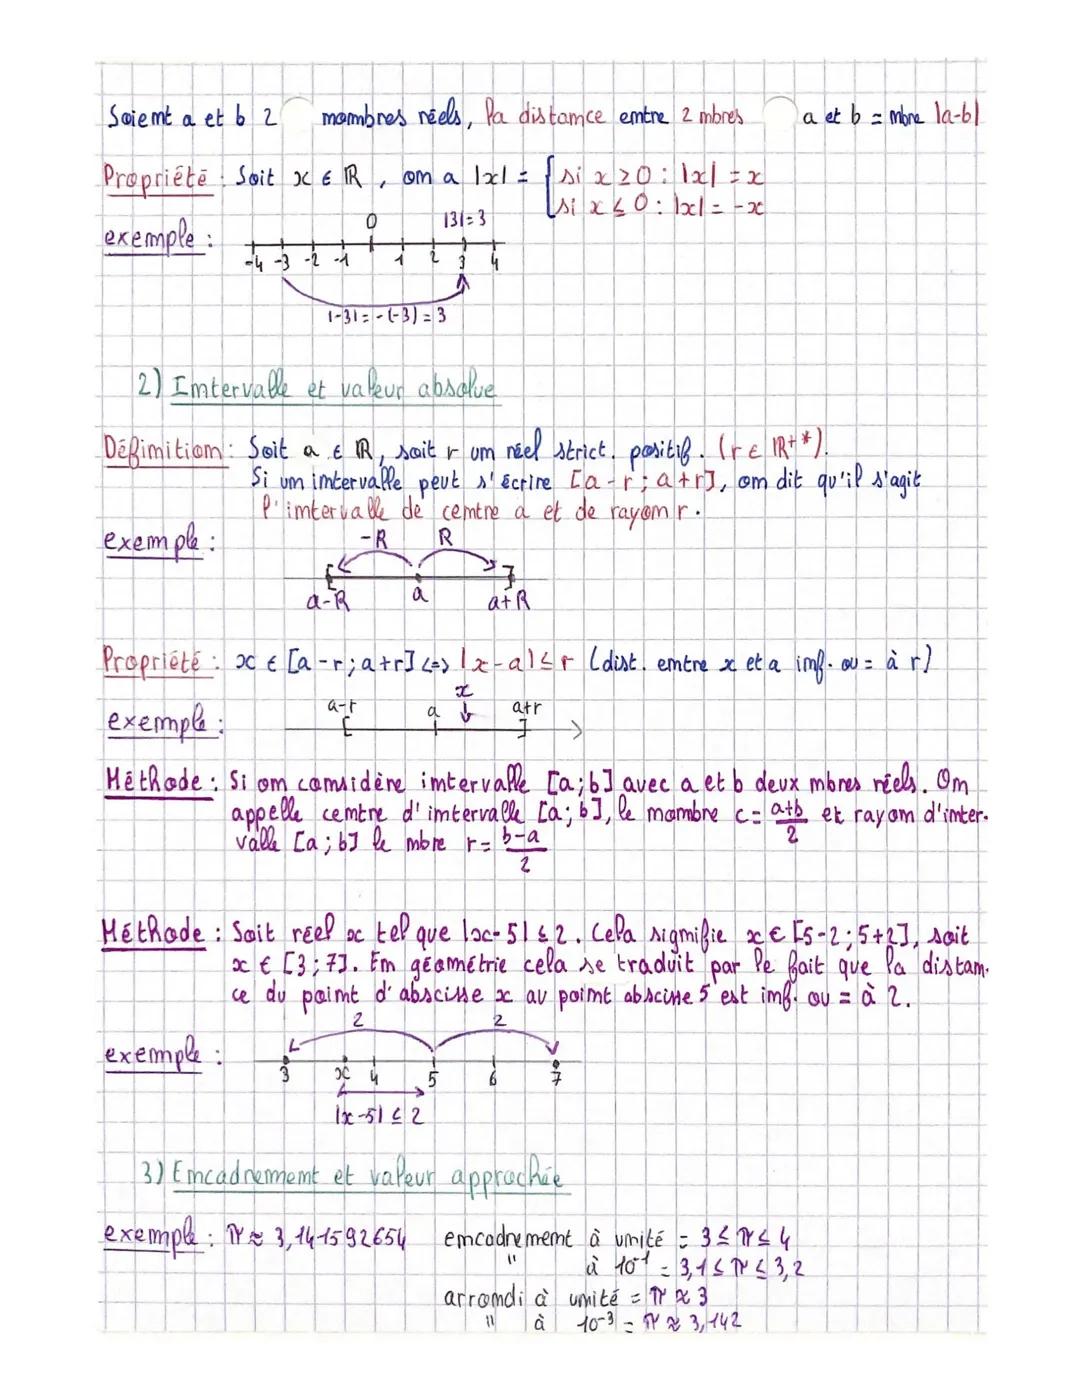 Soient a et b 2 nombres réels, la distance entre 2 nbres a et b = nbre |a-b|
Propriété : Soit x ∈ ℝ, on a |x| = { si x ≥ 0 : |x| = x
si x ≤ 0 : |x| = -x
exemple :
0 |3| = 3
-4 -3 -2 -1 1 2 3 4
|-3| = -(-3) = 3
2) Intervalle et valeur absolue
Définition : Soit a ∈ ℝ, soit r un réel strict. positif. (r ∈ ℝ+*).
Si un intervalle peut s'écrire [a-r ; a+r], on dit qu'il s'agit
l'intervalle de centre a et de rayon r.
exemple :
-R R
a-R a a+R
Propriété : x ∈ [a-r ; a+r] <=> |x-a| ≤ r (dist. entre x et a inf. ou = à r)
exemple :
x
a-r a a+r
Méthode : Si on considère intervalle [a;b] avec a et b deux nbres réels. On
appelle centre d'intervalle [a;b], le nombre c = a+b/2 et rayon d'inter-
valle [a;b] le nbre r = b-a/2
Méthode : Soit réel x tel que |x-5| ≤ 2. Cela signifie x ∈ [5-2 ; 5+2], soit
x ∈ [3;7]. En géométrie cela se traduit par le fait que la distan-
ce du point d'abscisse x au point abscisse 5 est inf. ou = à 2.
2 2
exemple :
3 x 4 5 6 7
|x-5| ≤ 2
3) Encadrement et valeur approchée
exemple : π ≈ 3,141592654 encadrement à unité = 3 ≤ π ≤ 4
" à 10⁻¹ = 3,1 ≤ π ≤ 3,2
arrondi à unité = π ≈ 3
" à 10⁻³ = π ≈ 3,142